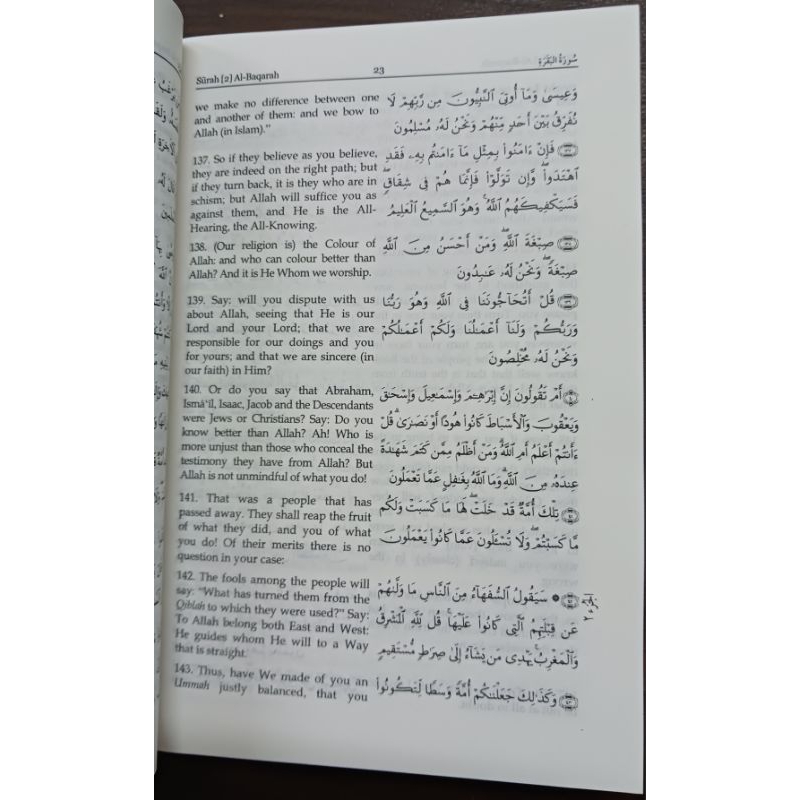 Sūrah [2] Al-Baqarah
23
سُورَةُ البَقَرَةِ
we make no difference between one
and another of them: and we bow to
Allah (in Islam)."
137. So if they believe as you believe,
they are indeed on the right path; but
if they turn back, it is they who are in
schism; but Allah will suffice you as
against them, and He is the All-
Hearing, the All-Knowing.
138. (Our religion is) the Colour of
Allah: and who can colour better than
Allah? And it is He Whom we worship.
139. Say: will you dispute with us
about Allah, seeing that He is our
Lord and your Lord; that we are
responsible for our doings and you
for yours; and that we are sincere (in
our faith) in Him?
140. Or do you say that Abraham,
Ismá‘il, Isaac, Jacob and the Descendants
were Jews or Christians? Say: Do you
know better than Allah? Ah! Who is
more unjust than those who conceal the
testimony they have from Allah? But
Allah is not unmindful of what you do!
141. That was a people that has
passed away. They shall reap the fruit
of what they did, and you of what
you do! Of their merits there is no
question in your case:
142. The fools among the people will
say: "What has turned them from the
Qiblah to which they were used?" Say:
To Allah belong both East and West:
He guides whom He will to a Way
that is straight.
143. Thus, have We made of you an
Ummah justly balanced, that you
وَعِيسَىٰ وَمَآ أُوتِيَ ٱلنَّبِيُّونَ مِن رَّبِّهِمْ لَا
نُفَرِّقُ بَيْنَ أَحَدٍ مِّنْهُمْ وَنَحْنُ لَهُۥ مُسْلِمُونَ
فَإِنْ ءَامَنُوا۟ بِمِثْلِ مَآ ءَامَنتُم بِهِۦ فَقَدِ
ٱهْتَدَوا۟ ۖ وَّإِن تَوَلَّوْا۟ فَإِنَّمَا هُمْ فِى شِقَاقٍ ۖ
فَسَيَكْفِيكَهُمُ ٱللَّهُ ۚ وَهُوَ ٱلسَّمِيعُ ٱلْعَلِيمُ
صِبْغَةَ ٱللَّهِ ۖ وَمَنْ أَحْسَنُ مِنَ ٱللَّهِ
صِبْغَةً ۖ وَنَحْنُ لَهُۥ عَـٰبِدُونَ
قُلْ أَتُحَآجُّونَنَا فِى ٱللَّهِ وَهُوَ رَبُّنَا
وَرَبُّكُمْ وَلَنَآ أَعْمَـٰلُنَا وَلَكُمْ أَعْمَـٰلُكُمْ
وَنَحْنُ لَهُۥ مُخْلِصُونَ
أَمْ تَقُولُونَ إِنَّ إِبْرَٰهِـۧمَ وَإِسْمَـٰعِيلَ وَإِسْحَـٰقَ
وَيَعْقُوبَ وَٱلْأَسْبَاطَ كَانُوا۟ هُودًا أَوْ نَصَـٰرَىٰ ۗ قُلْ
ءَأَنتُمْ أَعْلَمُ أَمِ ٱللَّهُ ۗ وَمَنْ أَظْلَمُ مِمَّن كَتَمَ شَهَـٰدَةً
عِندَهُۥ مِنَ ٱللَّهِ ۗ وَمَا ٱللَّهُ بِغَـٰفِلٍ عَمَّا تَعْمَلُونَ
تِلْكَ أُمَّةٌ قَدْ خَلَتْ ۖ لَهَا مَا كَسَبَتْ وَلَكُم
مَّا كَسَبْتُمْ ۖ وَلَا تُسْـَٔلُونَ عَمَّا كَانُوا۟ يَعْمَلُونَ
سَيَقُولُ ٱلسُّفَهَآءُ مِنَ ٱلنَّاسِ مَا وَلَّىٰهُمْ
عَن قِبْلَتِهِمُ ٱلَّتِى كَانُوا۟ عَلَيْهَا ۚ قُل لِّلَّهِ ٱلْمَشْرِقُ
وَٱلْمَغْرِبُ ۚ يَهْدِى مَن يَشَآءُ إِلَىٰ صِرَٰطٍ مُّسْتَقِيمٍ
وَكَذَٰلِكَ جَعَلْنَـٰكُمْ أُمَّةً وَسَطًا لِّتَكُونُوا۟
الجزء ٢